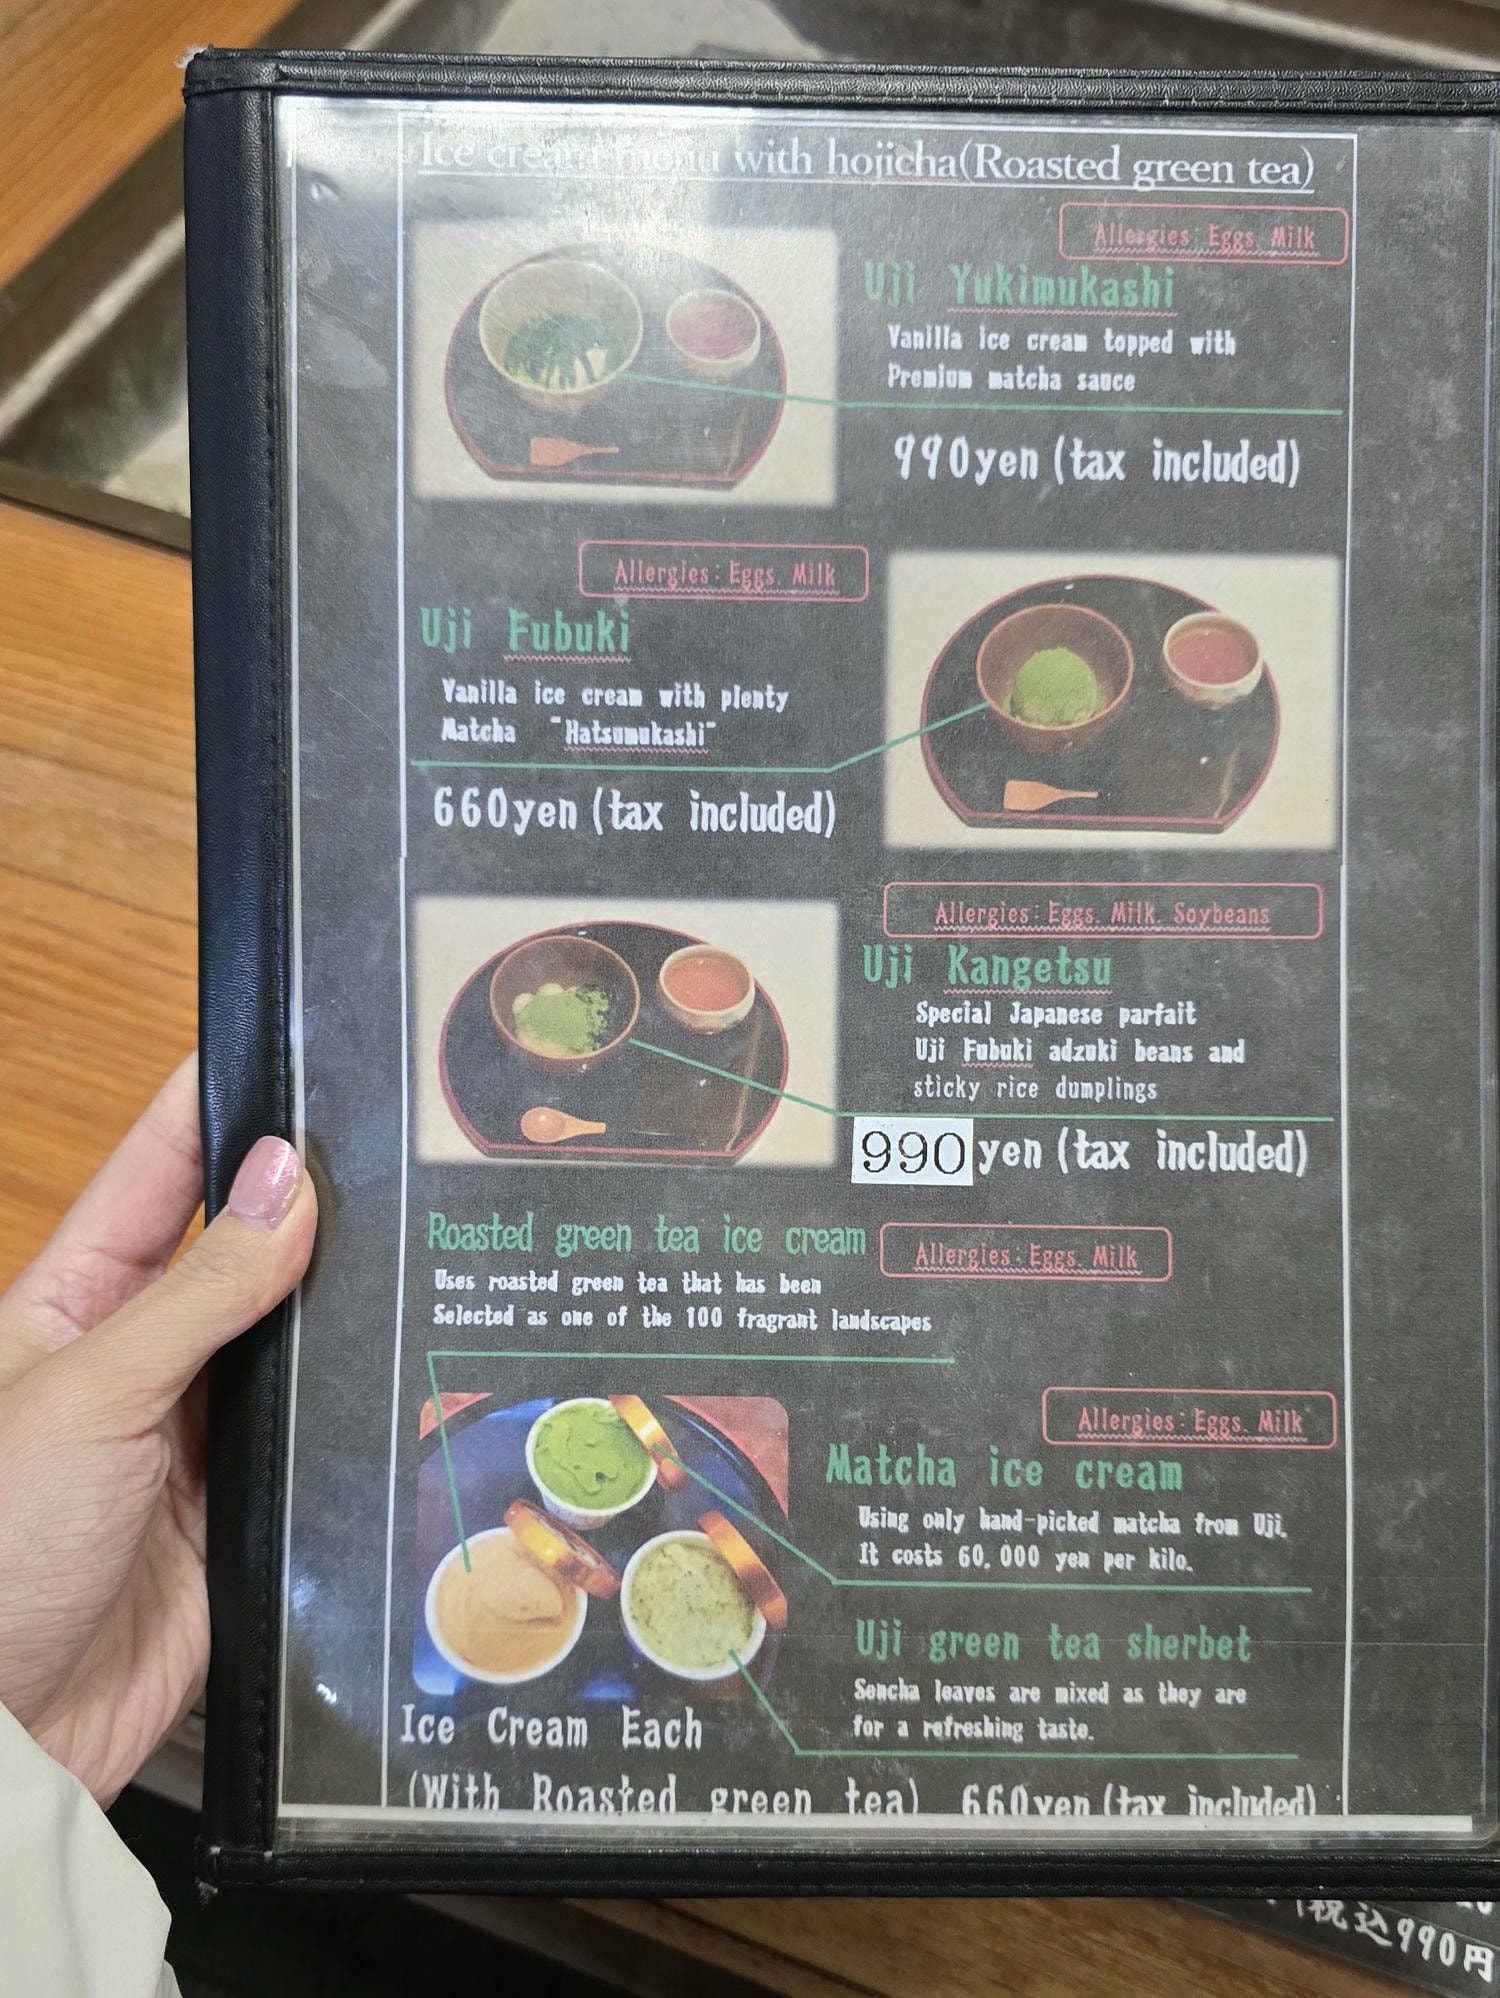 Ice cream menu with hojicha(Roasted green tea)
Allergies: Eggs. Milk
Uji Yukimukashi
Vanilla ice cream topped with
Premium matcha sauce
990yen (tax included)
Allergies: Eggs. Milk
Uji Fubuki
Vanilla ice cream with plenty
Matcha "Hatsumukashi"
660yen (tax included)
Allergies: Eggs. Milk. Soybeans
Uji Kangetsu
Special Japanese parfait
Uji Fubuki adzuki beans and
sticky rice dumplings
990 yen (tax included)
Roasted green tea ice cream
Allergies: Eggs. Milk
Uses roasted green tea that has been
Selected as one of the 100 fragrant landscapes
Allergies: Eggs. Milk
Matcha ice cream
Using only hand-picked matcha from Uji.
It costs 60,000 yen per kilo.
Uji green tea sherbet
Sencha leaves are mixed as they are
for a refreshing taste.
Ice Cream Each
(With Roasted green tea) 660yen (tax included)
税込990円